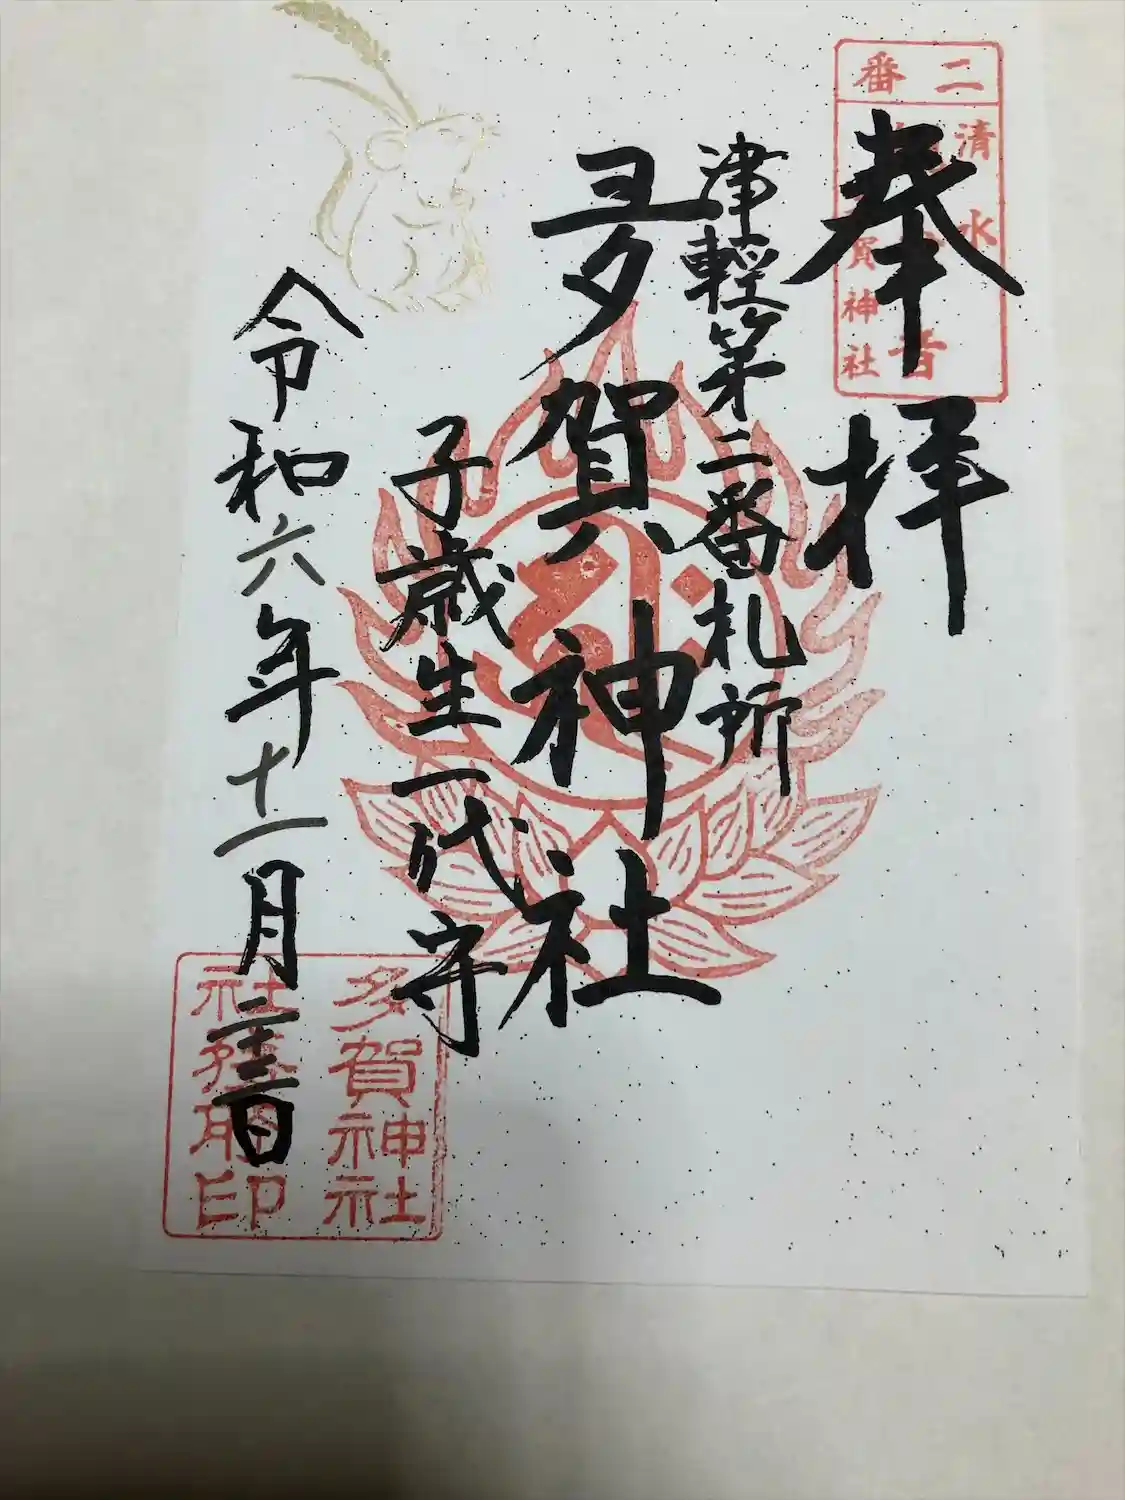 奉拝
二番
清水
音
賀神社
津輕第二番札所
多賀神社
子歳生一代守
令和六年十一月二十三日
多賀神社
社務所印